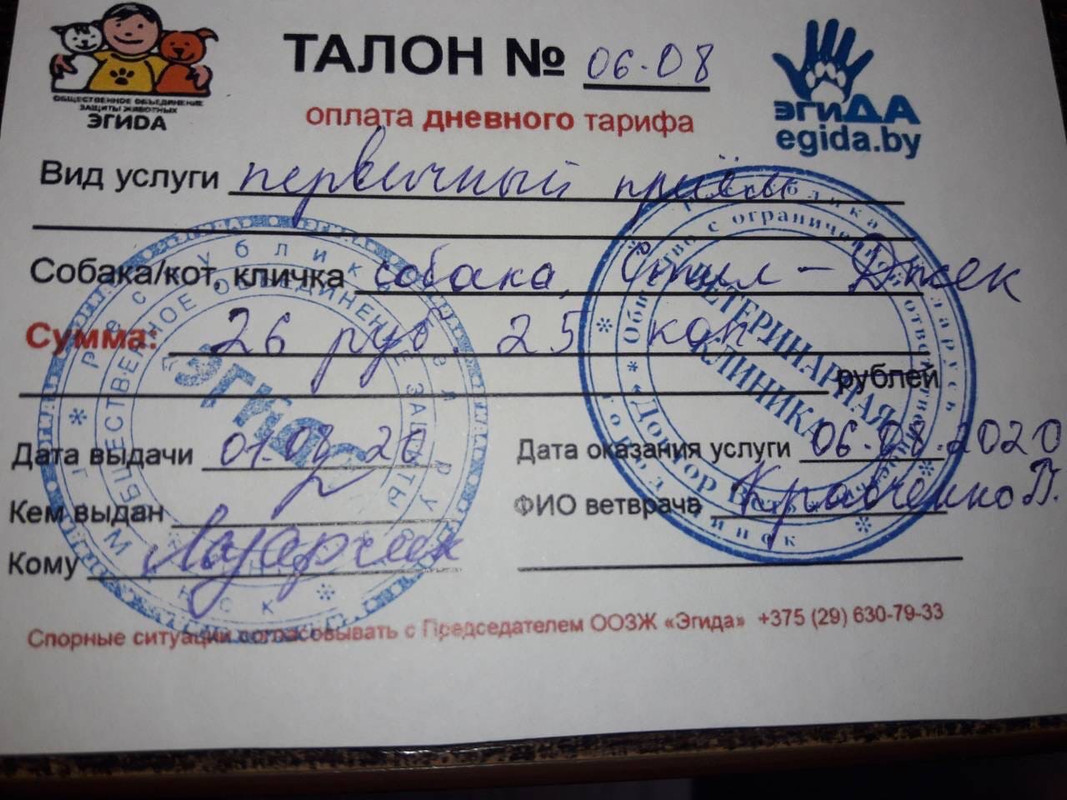 ОБЩЕСТВЕННОЕ ОБЪЕДИНЕНИЕ
ЗАЩИТЫ ЖИВОТНЫХ
ЭГИДА
ТАЛОН № 06.08
оплата дневного тарифа
ЭГИДА
egida.by
Вид услуги первичный приём
Собака/кот, кличка собака, Стил - Джек
Сумма: 26 руб. 25 коп
рублей
Дата выдачи 01.08.20
Дата оказания услуги 06.08.2020
Кем выдан
ФИО ветврача Кравченко В.
Кому
Спорные ситуации согласовывать с Председателем ООЗЖ «Эгида» +375 (29) 630-79-33
Республика Беларусь
ОБЩЕСТВЕННОЕ ОБЪЕДИНЕНИЕ ЗАЩИТЫ
Эгида
г. Минск
Республика Беларусь
Общество с ограниченной ответственностью
ВЕТЕРИНАРНАЯ
КЛИНИКА
город Минск